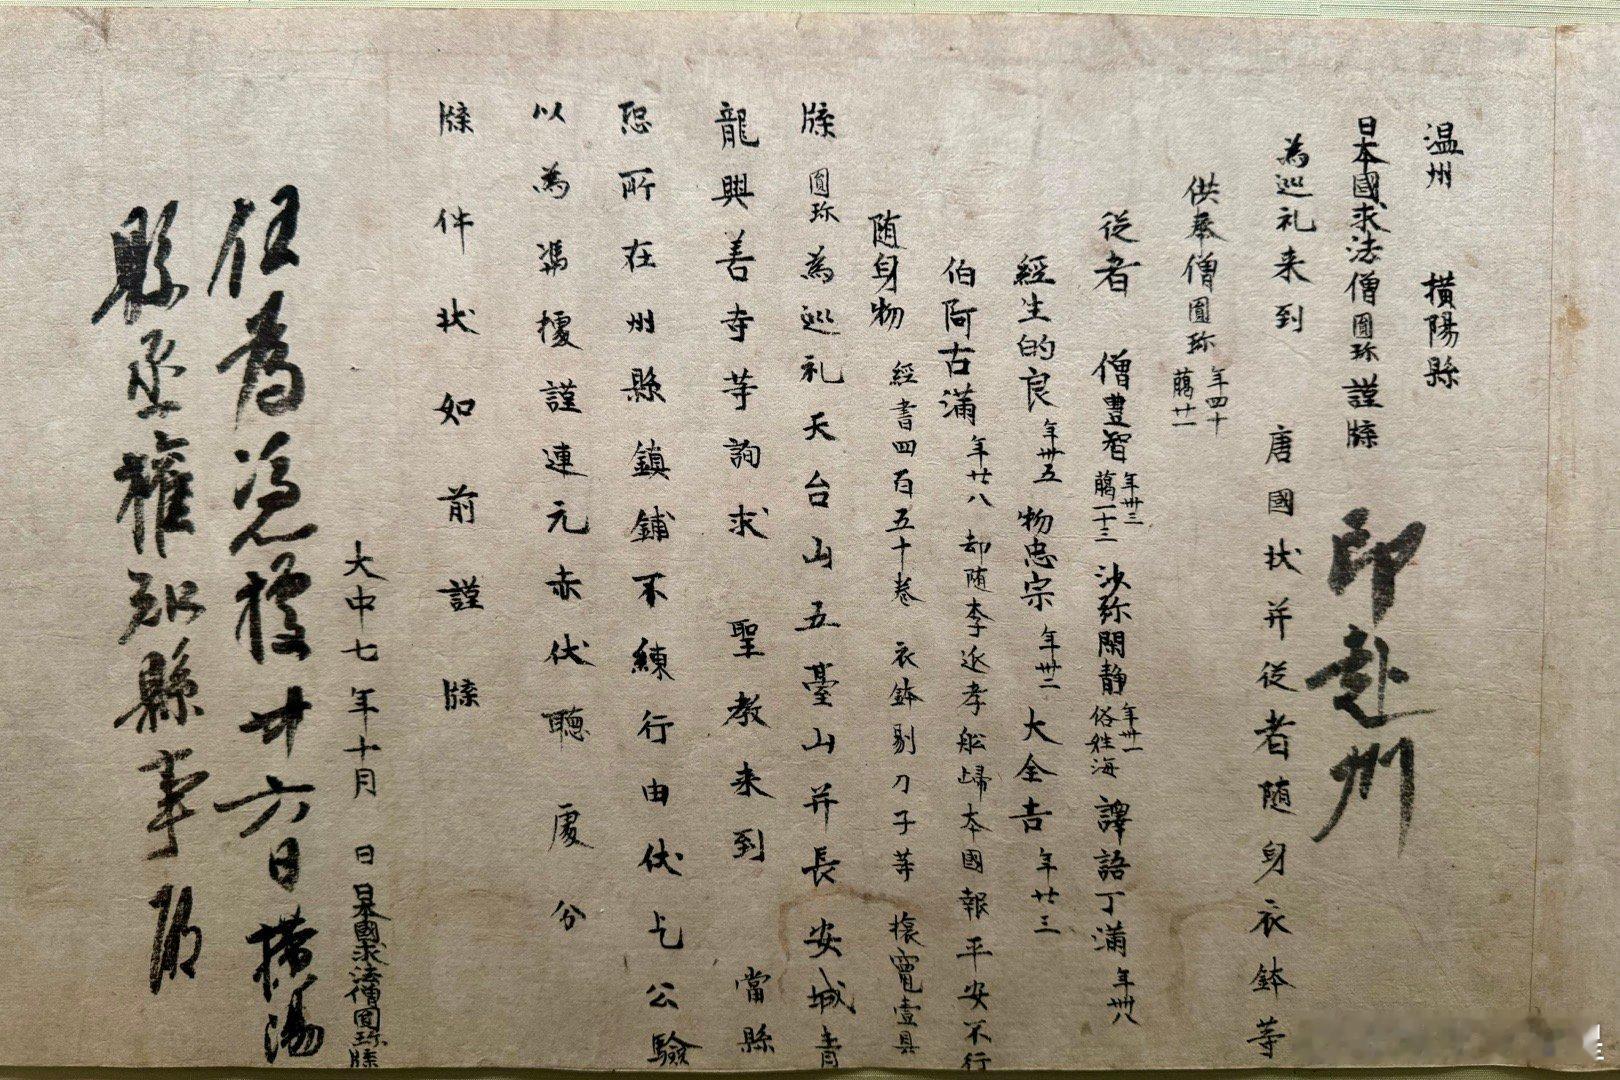 温州　橫陽縣
日本國求法僧圓珎謹牒
印赴州
為巡礼来到　唐國状并従者随身衣鉢等
供奉僧圓珎年四十臈廿一
従者　僧豊智年卅三臈一十三　沙弥閑静年卅一俗姓海　譯語丁滿年卅八
經生的良年卅五　物忠宗年卅二　大全吉年廿三
伯阿古滿年廿八　却随李延孝舩歸本國報平安不行
随身物　經書四百五十卷　衣鉢剔刀子等　㯼竃壹具
牒圓珎為巡礼天台山五臺山并長安城青
龍興善寺等詢求　聖教来到　當縣
恐所在州縣鎮鋪不練行由伏乞公驗
以為憑據謹連元赤伏聽　處分
牒件状如前謹牒
大中七年十月　日日本國求法僧圓珎牒
任為憑據廿六日橫陽
縣丞權知縣事